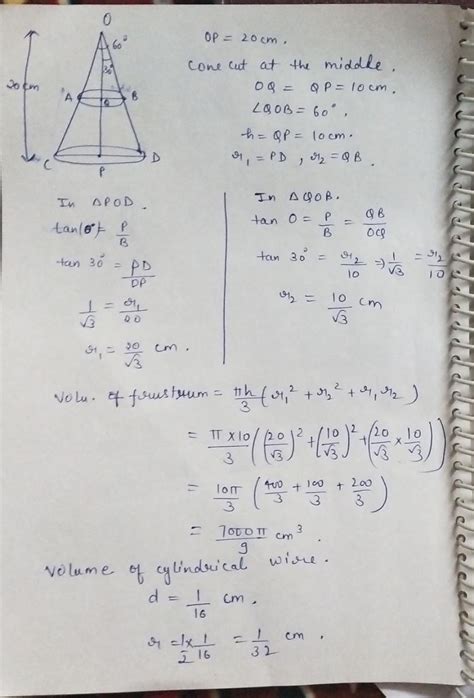 O
60°
30°
20cm
A
B
Q
C
P
D
OP = 20cm.
Cone cut at the middle.
OQ = QP = 10cm.
∠QOB = 60°.
h = QP = 10cm.
r₁ = PD, r₂ = QB
In ΔPOD.
tan(θ) = P/B
tan 30° = PD/OP
1/√3 = r₁/20
r₁ = 20/√3 cm.
In ΔQOB.
tan O = P/B = QB/OQ
tan 30° = r₂/10 ⇒ 1/√3 = r₂/10
r₂ = 10/√3 cm
Volu. of frustrum = πh/3 (r₁² + r₂² + r₁r₂)
= π×10/3 ((20/√3)² + (10/√3)² + (20/√3 × 10/√3))
= 10π/3 (400/3 + 100/3 + 200/3)
= 7000π/9 cm³
Volume of cylindrical wire.
d = 1/16 cm.
r = 1/2 × 1/16 = 1/32 cm.